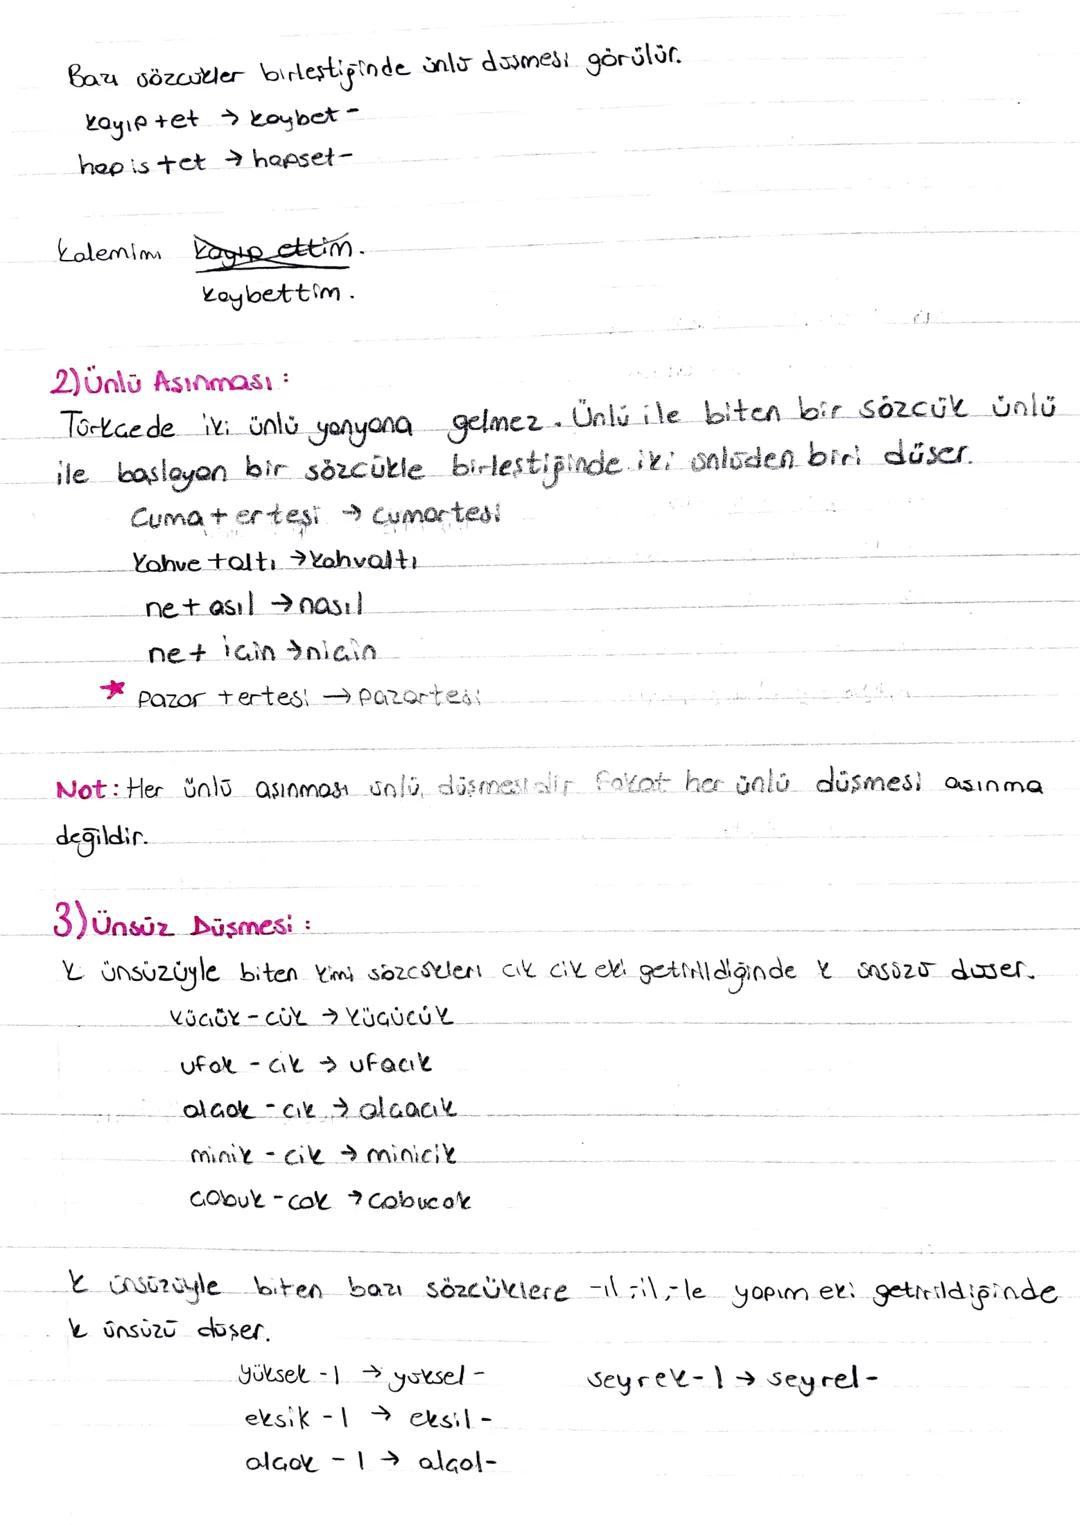 Bazı sözcükler birleştiğinde ünlü düşmesi görülür.
kayıp + et → kaybet-
hapis + et → hapset-
Kalemimi kayıp ettim.
kaybettim.
2) Ünlü Aşınması :
Türkçede iki ünlü yanyana gelmez. Ünlü ile biten bir sözcük ünlü
ile başlayan bir sözcükle birleştiğinde iki ünlüden biri düşer.
Cuma + ertesi → cumartesi
Kahve + altı → kahvaltı
ne + asıl → nasıl
ne + için → niçin
★ pazar + ertesi → pazartesi
Not: Her ünlü aşınması ünlü düşmesidir fakat her ünlü düşmesi aşınma
değildir.
3) Ünsüz Düşmesi :
k ünsüzüyle biten kimi sözcükleri cık cik eki getirildiğinde k ünsüzü düşer.
küçük - cük → küçücük
ufak - cık → ufacık
alçak - cık → alçacık
minik - cik → minicik
çabuk - cak → çabucak
k ünsüzüyle biten bazı sözcüklere -ıl, -il, -le yapım eki getirildiğinde
k ünsüzü düşer.
yüksek - l → yüksel- seyrek - l → seyrel-
eksik - l → eksil-
alçak - l → alçal-